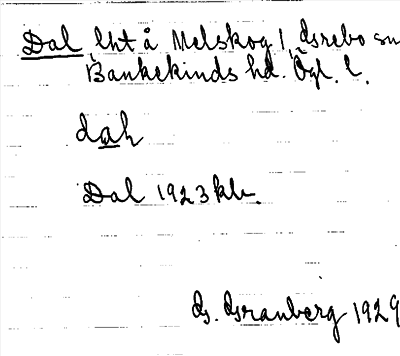 Dal lht å Melskog 1, Grebo sn
Bankekinds hd. Ögl. l.
dah
Dal 1923
G. Granberg 1929